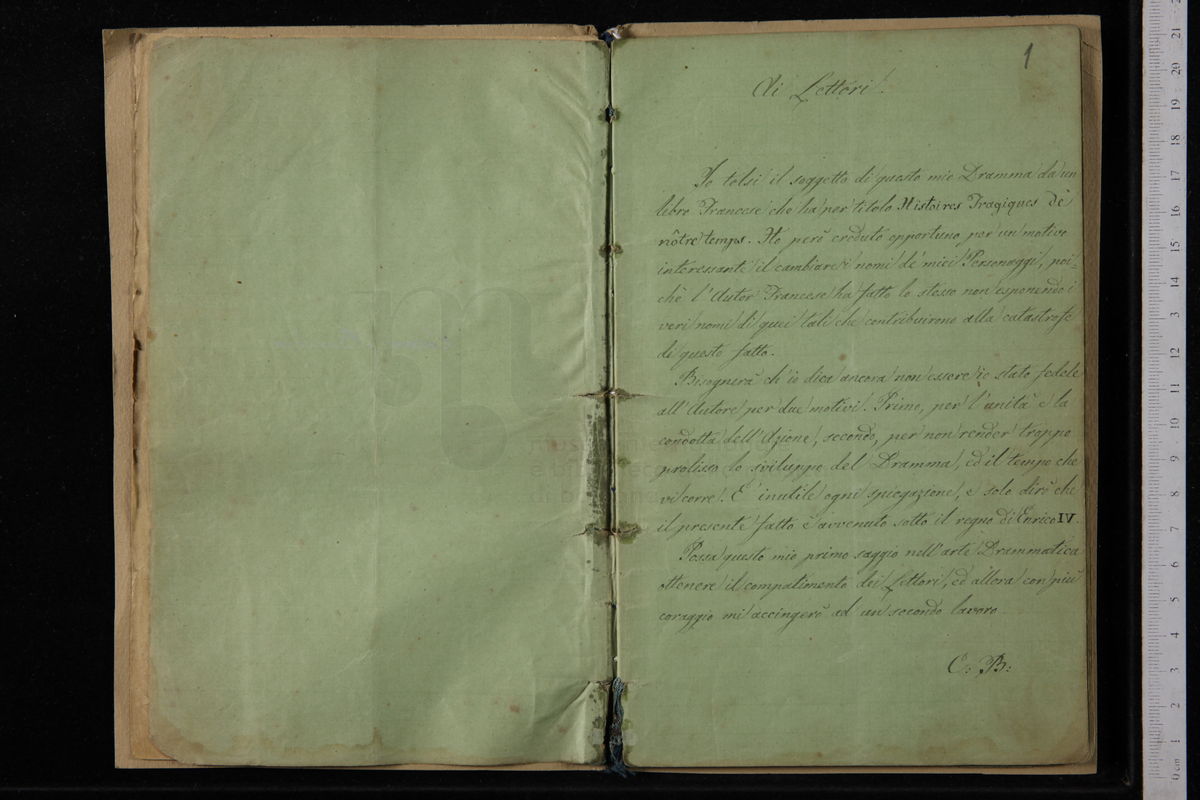 1
Ai Lettori.
Io tolsi il soggetto di questo mio Dramma da un
libro Francese che ha per titolo Histoires Tragiques de
nôtre temps. Ho però creduto opportuno per un motivo
interessante il cambiare i nomi de' miei Personaggi, poi-
chè l'Autor Francese ha fatto lo stesso non esponendo i
veri nomi di quei tali che contribuirono alla catastrofe
di questo fatto.
Bisognerà ch'io dica ancora non essere io stato fedele
all'Autore per due motivi. Primo, per l'unità e la
condotta dell'Azione, secondo, per non render troppo
prolisso lo sviluppo del Dramma, ed il tempo che
vi corre. E' inutile ogni spiegazione, e solo dirò che
il presente fatto è avvenuto sotto il regno di Enrico IV.
Possa questo mio primo saggio nell'arte Drammatica
ottenere il compatimento dei Lettori, ed allora con più
coraggio mi accingerò ad un secondo lavoro.
C: B: